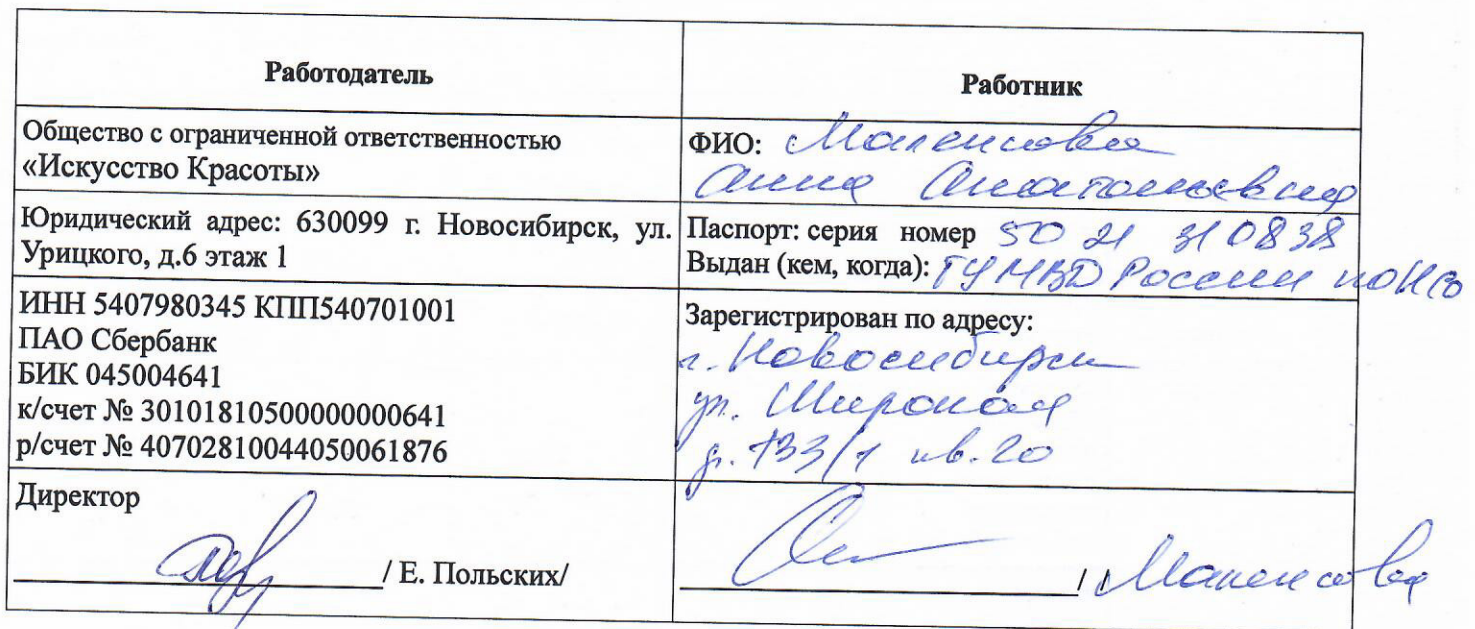 Работодатель
Работник
Общество с ограниченной ответственностью
«Искусство Красоты»
ФИО:
Анна Анатольевна
Юридический адрес: 630099 г. Новосибирск, ул.
Урицкого, д.6 этаж 1
Паспорт: серия номер 50 21 310838
Выдан (кем, когда): ГУ МВД России по НСО
ИНН 5407980345 КПП540701001
ПАО Сбербанк
БИК 045004641
к/счет № 30101810500000000641
р/счет № 40702810044050061876
Зарегистрирован по адресу:
г. Новосибирск
ул. Широкая
д. 133/1 кв. 20
Директор
/ Е. Польских/
/ /